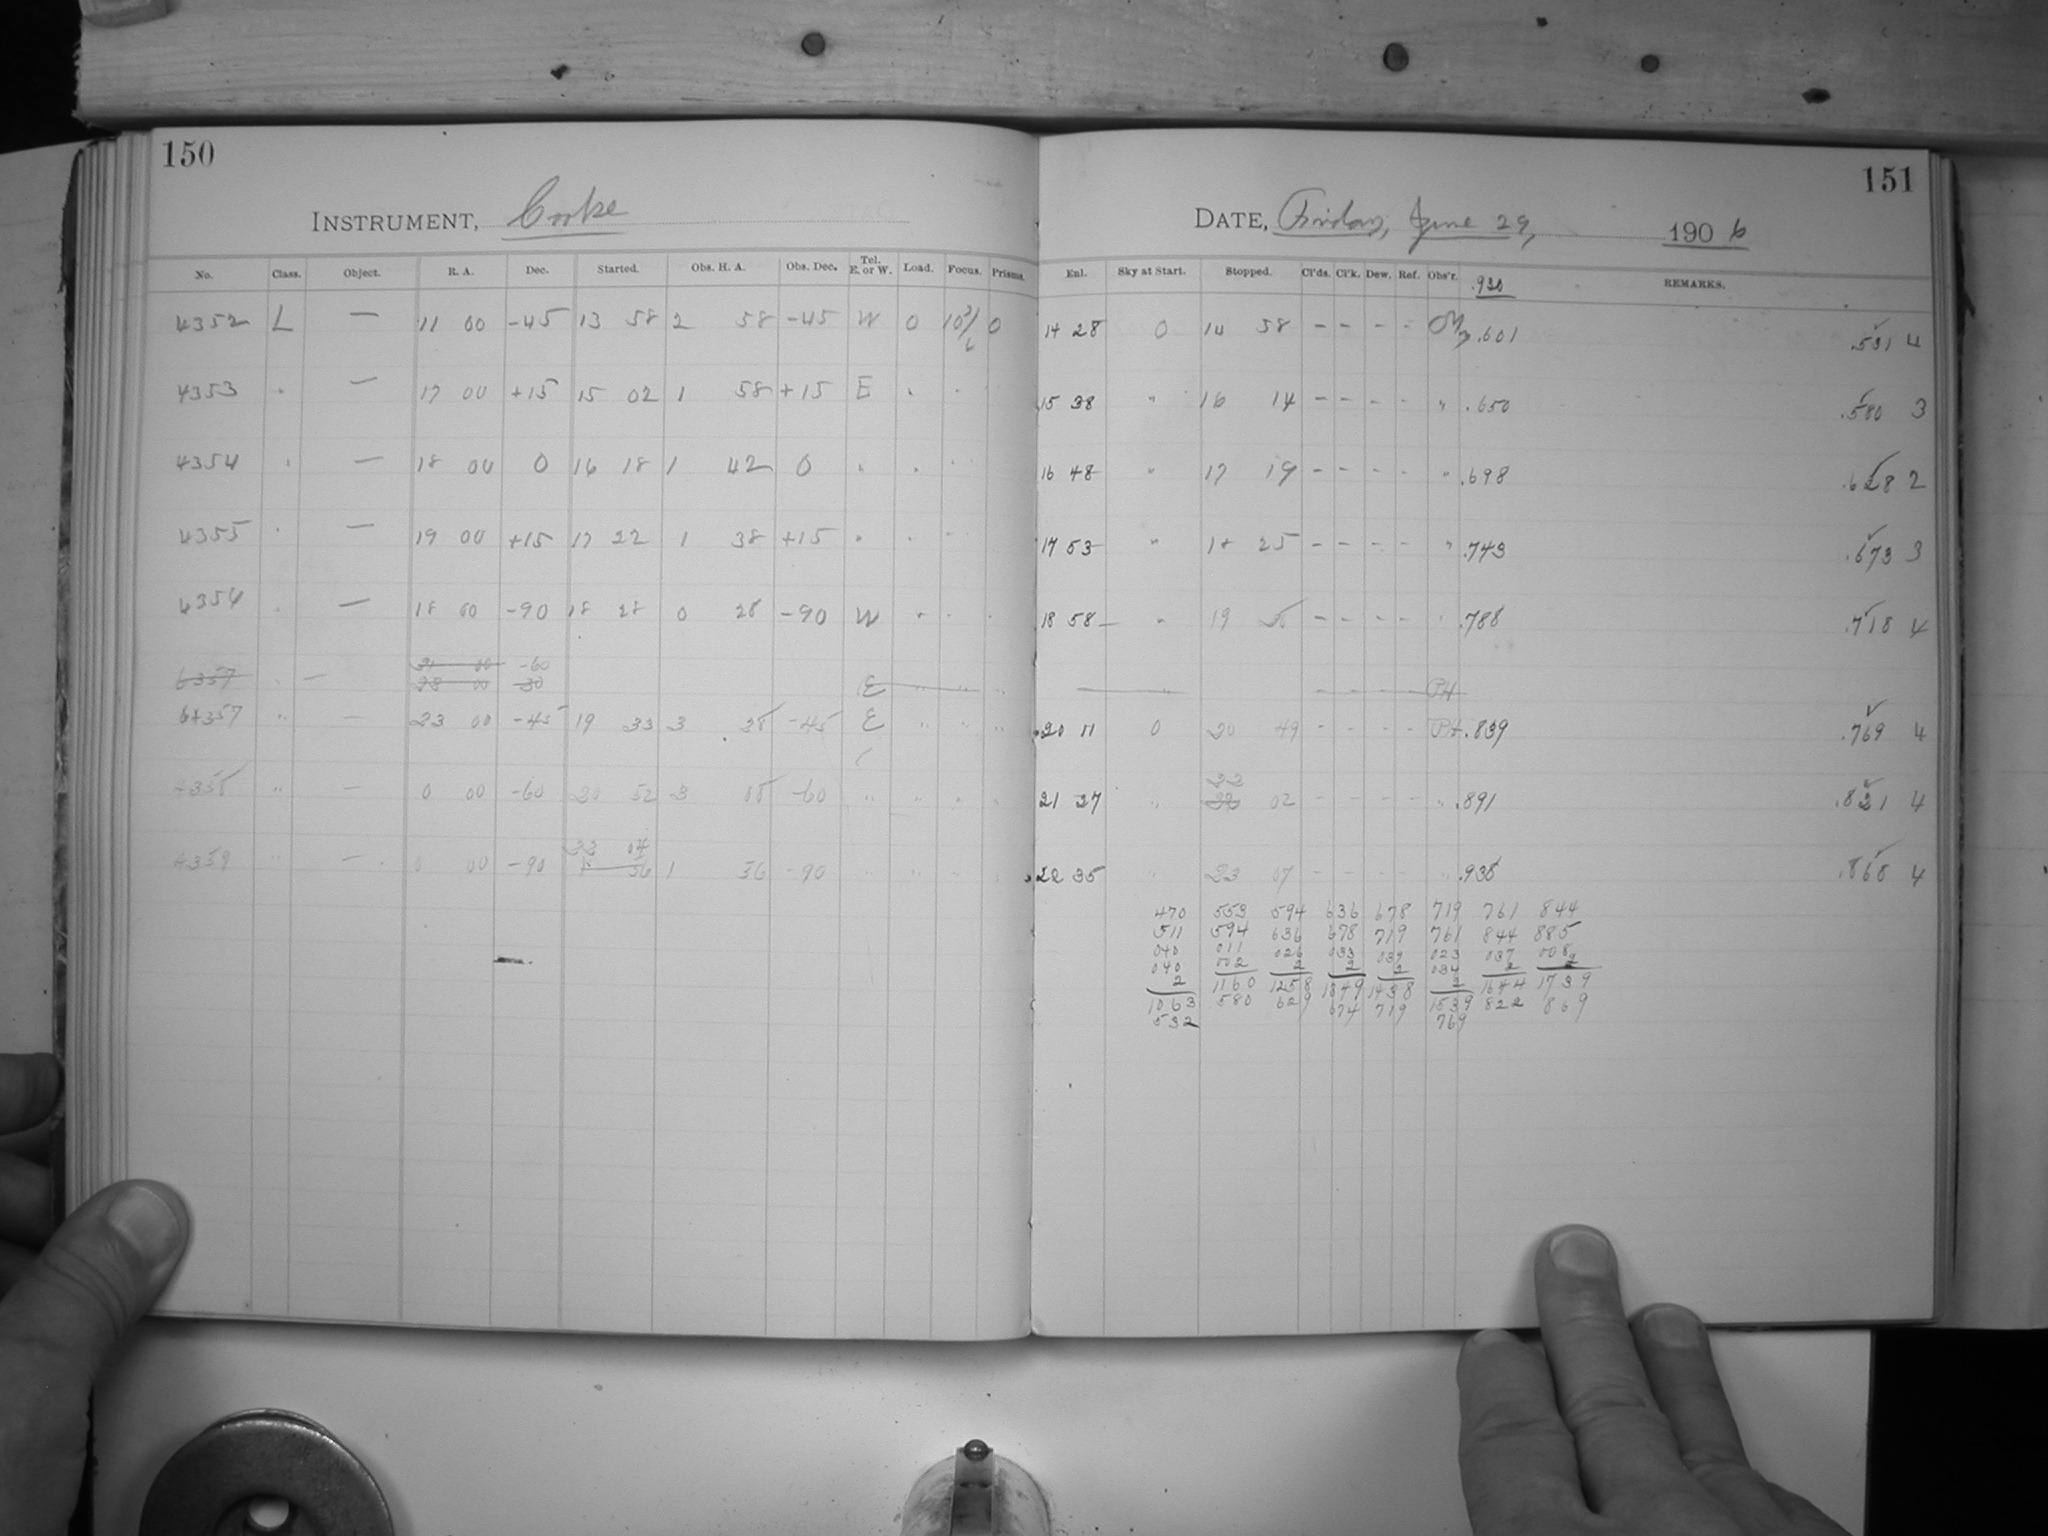 150
INSTRUMENT, Cooke
No. Class. Object. R. A. Dec. Started. Obs. H. A. Obs. Dec. Tel. E. or W. Load. Focus. Prisms.
4352 L — 11 00 -45 13 58 2 58 -45 W 0 10 3/6 0
4353 " — 17 00 +15 15 02 1 58 +15 E " "
4354 " — 18 00 0 16 18 1 42 0 " " "
4355 " — 19 00 +15 17 22 1 38 +15 " " "
4356 " — 18 00 -90 18 28 0 28 -90 W " " "
21 00 -60
4357 " — 23 00 -30 E " " "
4357 " — 23 00 -45 19 33 3 28 -45 E " " "
4358 " — 0 00 -60 20 52 3 08 -60 " " " "
22 04
4359 " — 0 00 -90 1 56 1 56 -90 " " " "
151
DATE, Friday, June 29, 1906
Enl. Sky at Start. Stopped. Cl'ds. Cl'k. Dew. Ref. Obs'r. .930 REMARKS.
14 28 0 14 58 - - - - .601 .531 4
15 38 " 16 14 - - - - " .650 .580 3
16 48 " 17 19 - - - - " .698 .628 2
17 53 " 18 25 - - - - " .743 .673 3
18 58 " 19 - - - - " .788 .718 4
— " — - - - - PH
20 11 0 20 49 - - - - PH .839 .769 4
22
21 27 " 22 02 - - - - " .891 .821 4
22 35 " 23 07 - - - - " .938 .868 4
470 553 594 636 678 719 761 844
511 594 636 678 719 761 844 885
040 011 026 033 039 023 037 008
040 002 2 2 2 034 2 2
2 1160 1258 1349 1438 2 1644 1739
1063 580 629 674 719 1539 822 869
532 769